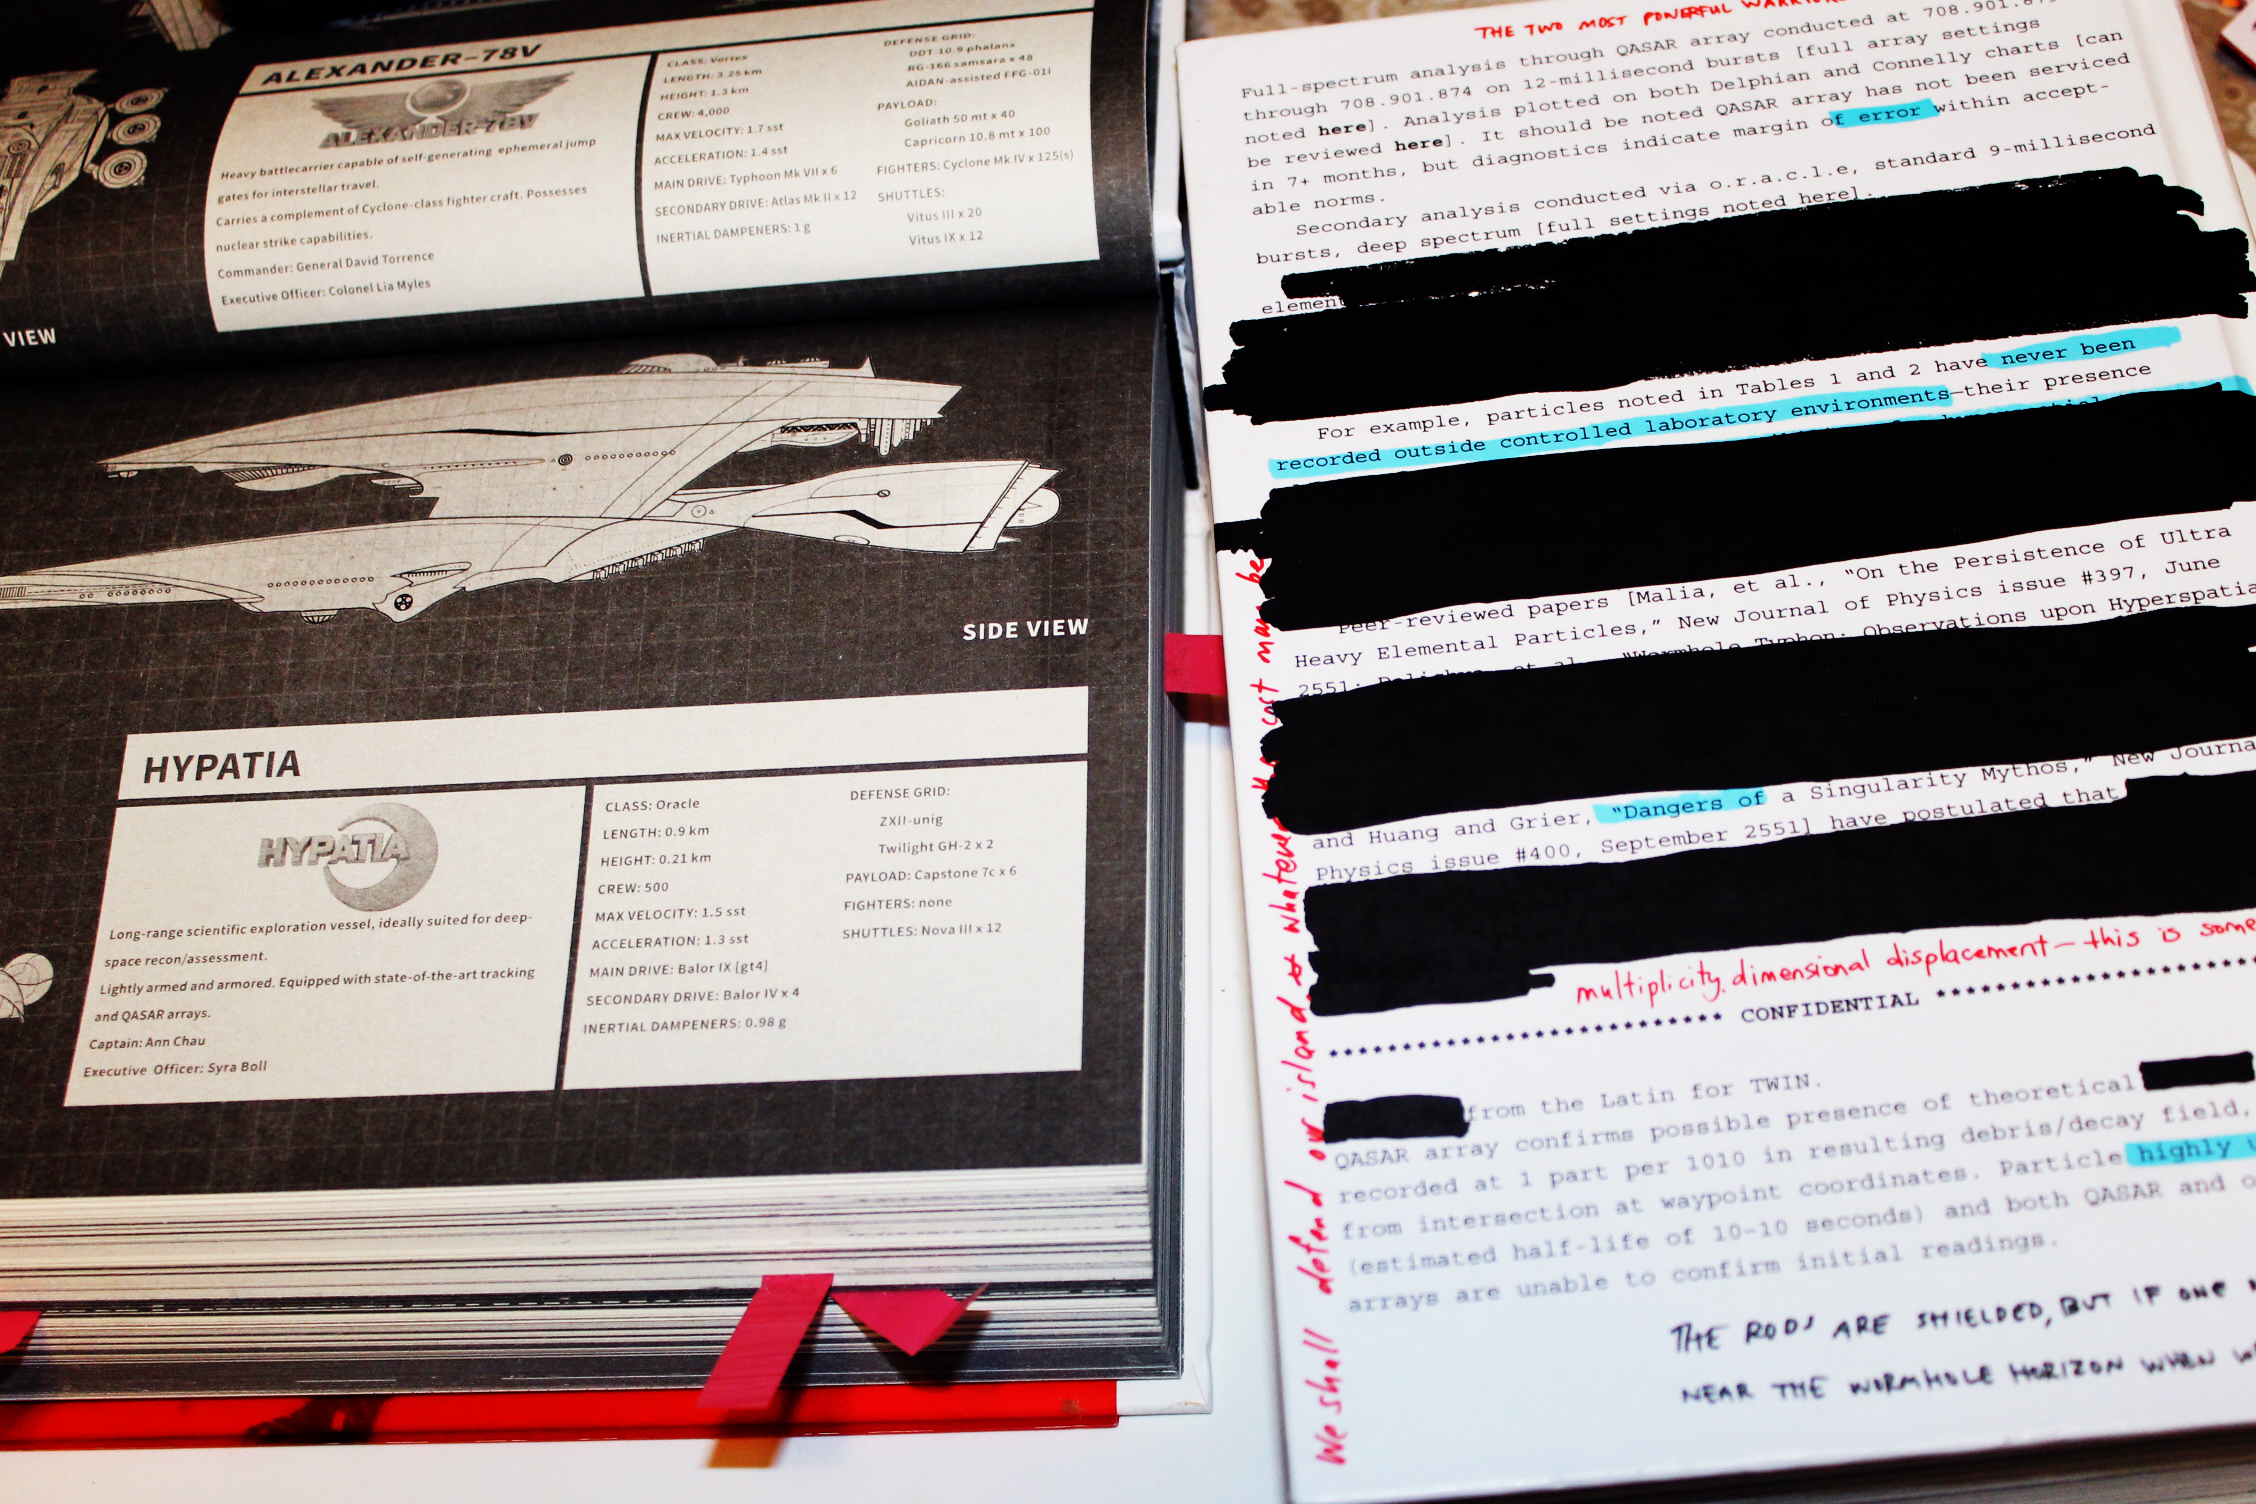 ALEXANDER-78V
ALEXANDER-78V
Heavy battlecarrier capable of self-generating ephemeral jump
gates for interstellar travel.
Carries a complement of Cyclone-class fighter craft. Possesses
nuclear strike capabilities.
Commander: General David Torrence
Executive Officer: Colonel Lia Myles
CLASS: Vortex
LENGTH: 3.25 km
HEIGHT: 1.3 km
CREW: 4,000
MAX VELOCITY: 1.7 sst
ACCELERATION: 1.4 sst
MAIN DRIVE: Typhoon Mk VII x 6
SECONDARY DRIVE: Atlas Mk II x 12
INERTIAL DAMPENERS: 1 g
DEFENSE GRID:
DDT-10.9 phalanx
RG-166 samsara x 48
AIDAN-assisted FFG-01i
PAYLOAD:
Goliath 50 mt x 40
Capricorn 10.8 mt x 100
FIGHTERS: Cyclone Mk IV x 125(s)
SHUTTLES:
Vitus III x 20
Vitus IX x 12
VIEW
SIDE VIEW
HYPATIA
HYPATIA
Long-range scientific exploration vessel, ideally suited for deep-
space recon/assessment.
Lightly armed and armored. Equipped with state-of-the-art tracking
and QASAR arrays.
Captain: Ann Chau
Executive Officer: Syra Boll
CLASS: Oracle
LENGTH: 0.9 km
HEIGHT: 0.21 km
CREW: 500
MAX VELOCITY: 1.5 sst
ACCELERATION: 1.3 sst
MAIN DRIVE: Balor IX [gt4]
SECONDARY DRIVE: Balor IV x 4
INERTIAL DAMPENERS: 0.98 g
DEFENSE GRID:
ZXII-unig
Twilight GH-2 x 2
PAYLOAD: Capstone 7c x 6
FIGHTERS: none
SHUTTLES: Nova III x 12
THE TWO MOST POWERFUL
Full-spectrum analysis through QASAR array conducted at
through 708.901.874 on 12-millisecond bursts [full array settings
noted here]. Analysis plotted on both Delphian and Connelly charts [can
be reviewed here]. It should be noted QASAR array has not been serviced
in 7+ months, but diagnostics indicate margin of error within accept-
able norms.
Secondary analysis conducted via o.r.a.c.l.e, standard 9-millisecond
bursts, deep spectrum [full settings noted here].
element
For example, particles noted in Tables 1 and 2 have never been
recorded outside controlled laboratory environments—their presence
Peer-reviewed papers [Malia, et al., “On the Persistence of Ultra
Heavy Elemental Particles,” New Journal of Physics issue #397, June
2551; et al. “Wormhole Typhon: Observations upon Hyperspatia
and Huang and Grier, “Dangers of a Singularity Mythos,” New Journa
Physics issue #400, September 2551] have postulated that
multiplicity. dimensional displacement— this is some
************************** CONFIDENTIAL **********************
from the Latin for TWIN.
QASAR array confirms possible presence of theoretical
recorded at 1 part per 1010 in resulting debris/decay field,
from intersection at waypoint coordinates. Particle highly
(estimated half-life of 10-10 seconds) and both QASAR and
arrays are unable to confirm initial readings.
THE RODS ARE SHIELDED, BUT IF ONE
NEAR THE WORMHOLE HORIZON WHEN
We shall defend our island, whatever the cost may be